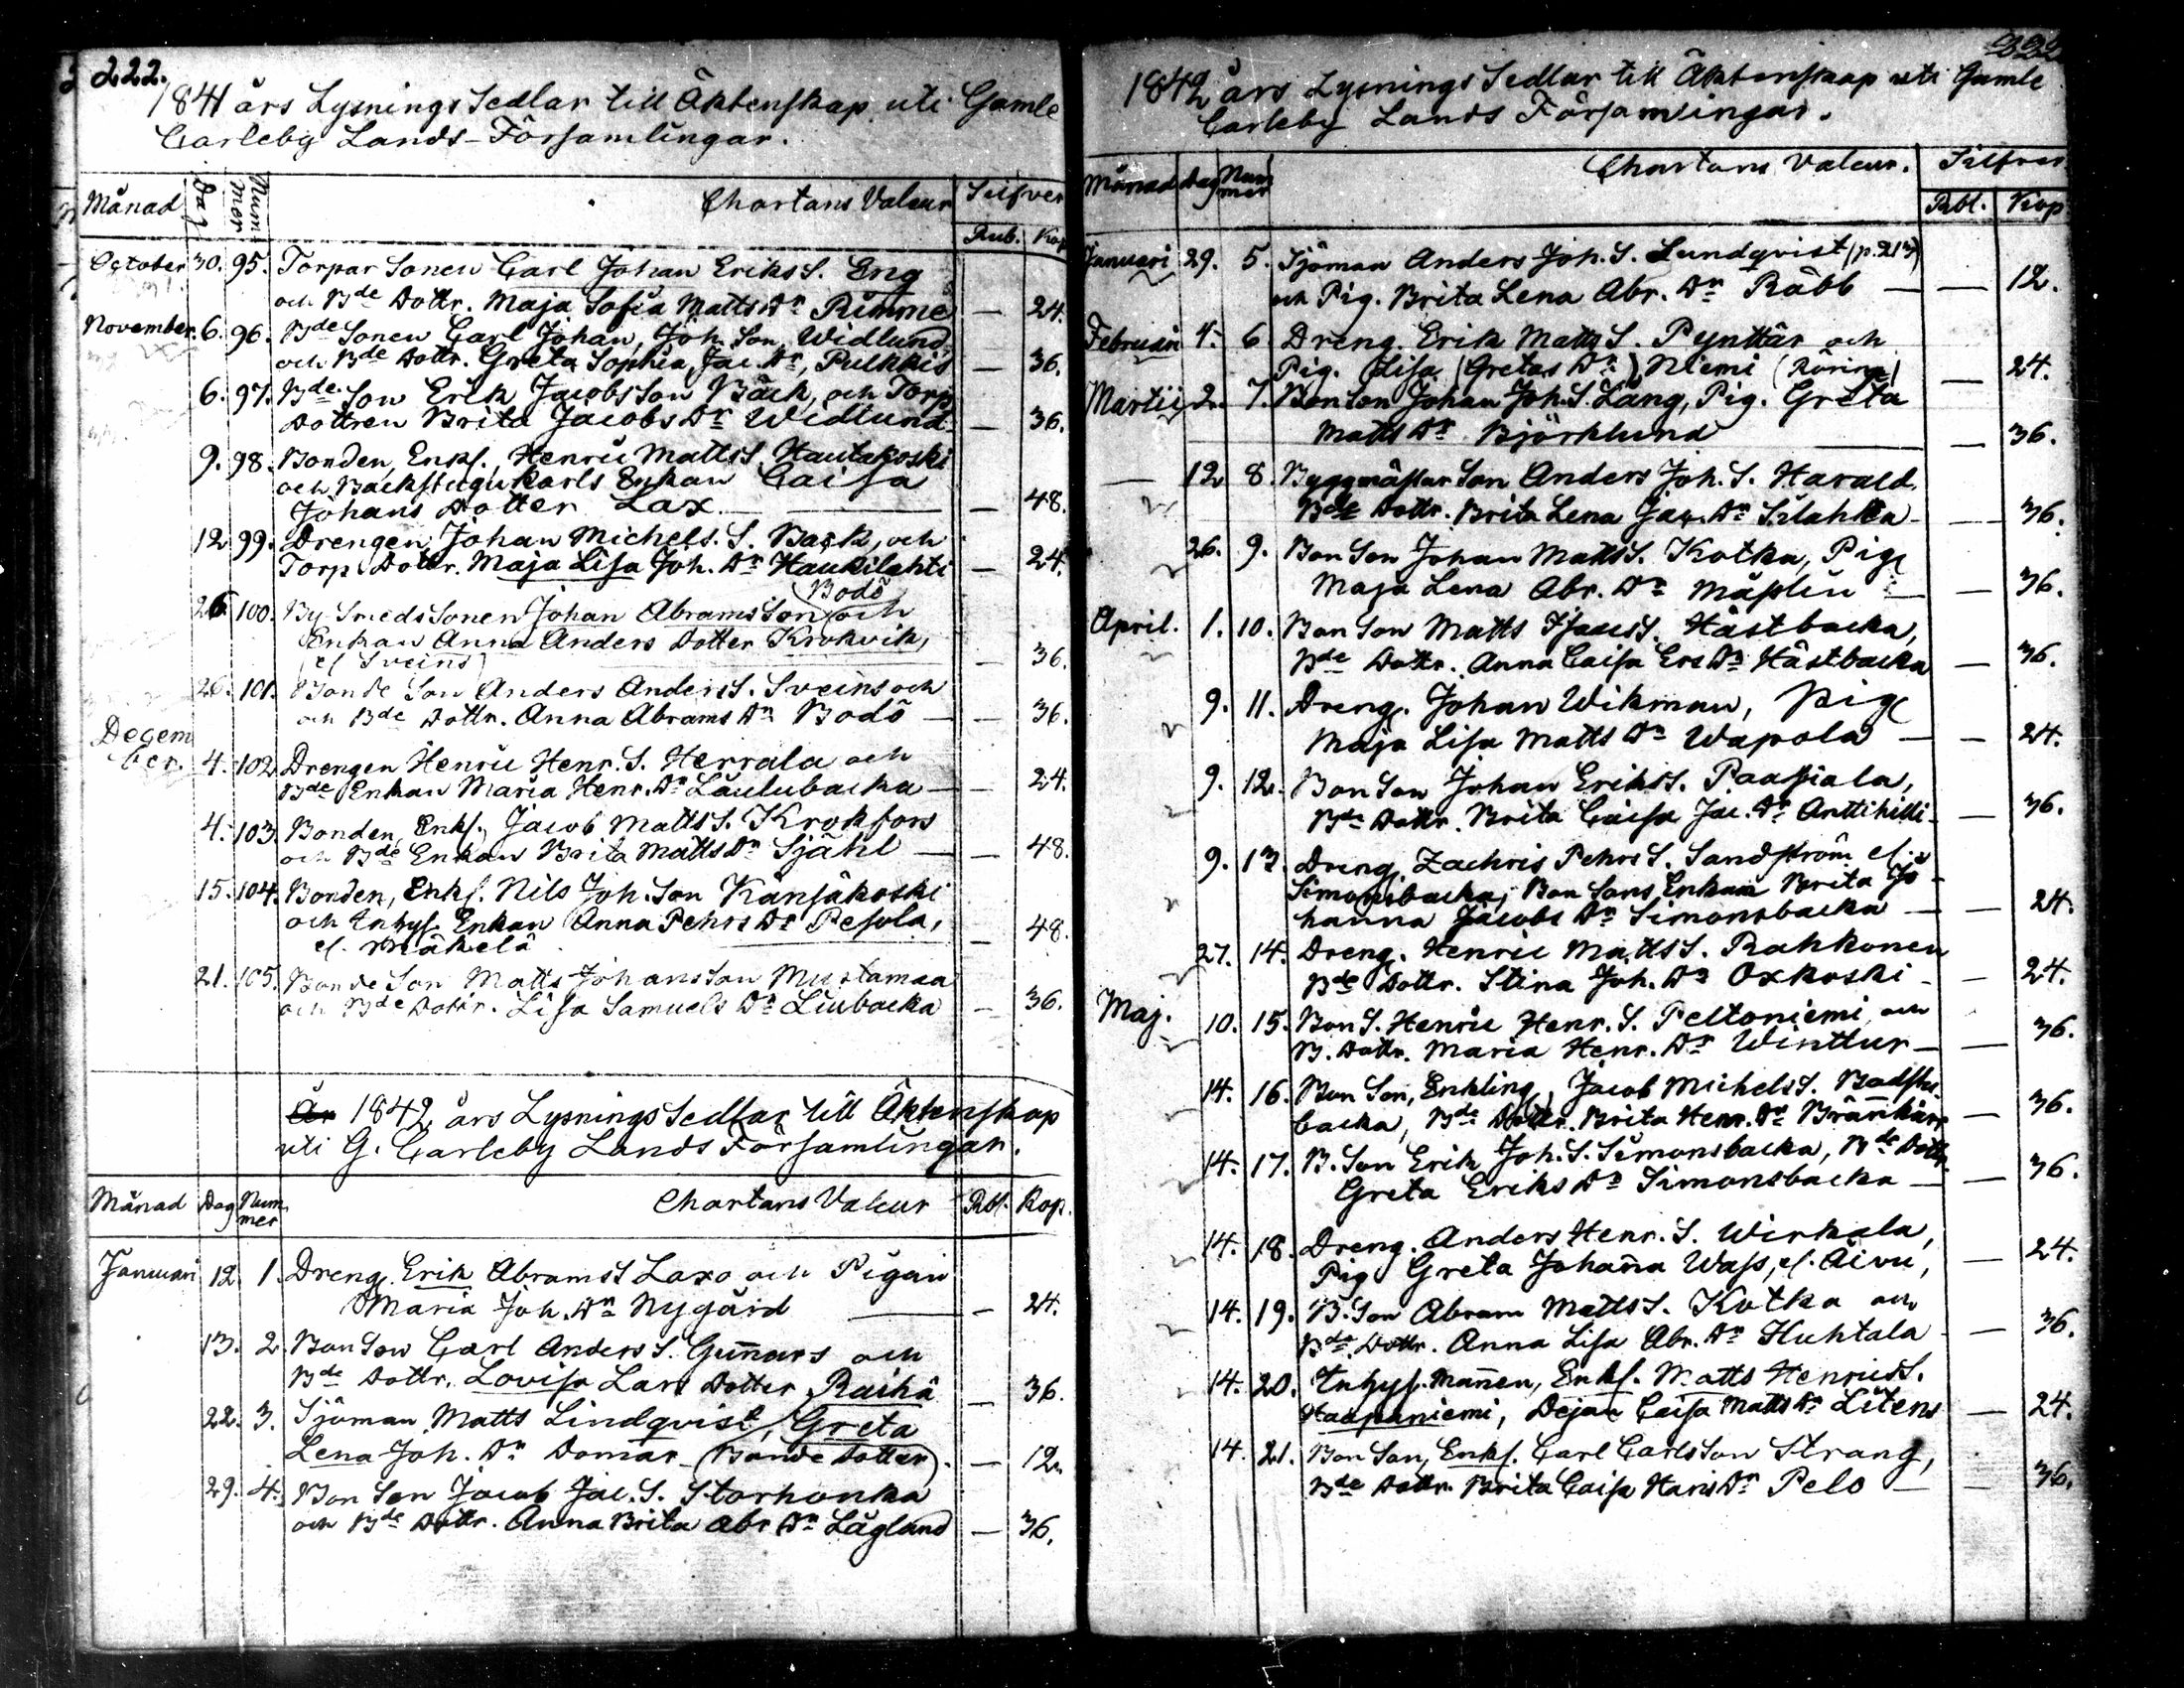 222.
1841 års Lysnings Sedlar till Äktenskap uti Gamle
Carleby Lands-Församlingar.
Månad Dag Nummer Chartans Valeur Silfver
Rub. Kop
October 30. 95. Torpar Sonen Carl Johan Eriks S. Eng
och Bde Dottr. Maja Sofia Matts Dr Rimme — 24.
November. 6. 96. Bde Sonen Carl Johan, Joh. Son, Widlund,
och Bde Dottr. Greta Sophia, Jac. Dr, Pulkkis — 36.
6. 97. Bde Son Erik Jacobs Son Bäck, och Torp
Dottren Brita Jacobs Dr Widlund — 36.
9. 98. Bonden, Enkl., Henric Matts S. Hautakoski
och Backstugukarls Enkan Caisa
Johans Dotter Lax. — 48.
12 99. Drengen Johan Michels. S. Back, och
Torp Dottr. Maja Lisa Joh. Dr Haukilahti — 24.
Bodö
26. 100. By Smeds Sonen Johan Abrams Son och
Enkan Anna Anders Dotter Krokvik,
(el Sveins) — 36.
26. 101. Bonde Son Anders Anders S. Sveins och
och Bde Dottr. Anna Abrams Dr Bodö — 36.
Decem
ber. 4. 102 Drengen Henric Henr. S. Herrala och
Bde Enkan Maria Henr. Dr Laulubacka — 24.
4. 103. Bonden, Enkl., Jacob Matts S. Krokfors
och Bde Enkan Brita Matts Dr Sjähl — 48.
15. 104. Bonden, Enkl. Nils Joh. Son Känsäkoski
och Inhys. Enkan Anna Pehrs Dr Pesola,
el. Mäkelä — 48.
21. 105. Bonde Son Matts Johans Son Mustamaa
och Bde Dottr. Lisa Samuels Dr Liubacka — 36.
År 1842 års Lysnings Sedlar till Äktenskap
uti G. Carleby Lands Församlingar.
Månad Dag Nummer Chartans Valeur Rbl. Kop.
Januari 12. 1. Dreng. Erik Abrams S Laxo och Pigan
Maria Joh. Dr Nygård — 24.
13. 2. Bon Son Carl Anders S. Gunnars och
Bde Dottr. Lovisa Lars Dotter Raihä — 36.
22. 3. Sjöman Matts Lindqvist, Greta
Lena Joh. Dr Domar (Bonde Dotter). — 12.
29. 4. Bon Son Jacob Jac. S. Storhonka
och Bde Dottr. Anna Brita Abr. Dr Lågland — 36.
1842 års Lysnings Sedlar till Äktenskap uti Gamle
Carleby Lands Församlingar.
Månad Dag Nummer Chartans Valeur. Silfver
Rbl. Kop
Januari 29. 5. Sjöman Anders Joh. S. Lundqvist (p. 213)
och Pig. Brita Lena Abr. Dr Räbb — 12.
Februari 4. 6 Dreng. Erik Matts S. Pynttär och
Pig. Lisa (Gretas Dr) Niemi — 24.
Martii 2. 7. Bon Son Johan Joh. S. Lång, Pig. Greta
Matts Dr Björklund — 36.
— 12 8. Byggmästar Son Anders Joh. S. Harald.
Bde Dottr. Brita Lena Jac. Dr Silahka — 36.
26. 9. Bon Son Johan Matts S. Kotka, Pig
Maja Lena Abr. Dr Måsslin — 36.
April. 1. 10. Bon Son Matts Isacs S. Hästbacka,
Bde Dottr. Anna Caisa Ers Dr Hästbacka — 36.
9. 11. Dreng. Johan Wikman, Pig
Maja Lisa Matts Dr Wapola — 24.
9. 12. Bon Son Johan Eriks S. Paasiala,
Bde Dottr. Brita Caisa Jac. Dr Anttihilli — 36.
9. 13. Dreng. Zachris Pehrs S. Sandström el.
Simonsbacka, Bon Sons Enkan Brita Jo-
hanna Jacobs Dr Simonsbacka — 24.
27. 14. Dreng. Henric Matts S. Rahkonen
Bde Dottr. Stina Joh. Dr Oxkoski — 24.
Maj. 10. 15. Bon S. Henric Henr. S. Peltoniemi och
B. Dottr. Maria Henr. Dr Winttur — 36.
14. 16. Bon Son, Enkling, Jacob Michels S. Badstu
backa, Bde Dottr. Brita Henr. Dr Brännkärr — 36.
14. 17. B. Son Erik Joh. S. Simonsbacka, Bde Dottr.
Greta Eriks Dr Simonsbacka — 36.
14. 18. Dreng. Anders Henr. S. Wirkala,
Pig Greta Johanna Wass, el. Aivu, — 24.
14. 19. B. Son Abram Matts S. Kotka och
Bde Dottr. Anna Lisa Abr. Dr Huhtala — 36.
14. 20. Inhys. Mannen, Enkl. Matts Henrics S.
Haapaniemi, Dejan Caisa Matts Dr Litens — 24.
14. 21. Bon Son, Enkl. Carl Carls Son Strang,
Bde Dottr. Brita Caisa Hans Dr Pelo — 36.